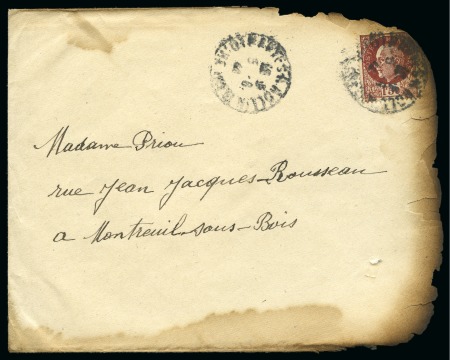 Madame Priou
rue Jean Jacques-Rousseau
a Montreuil-sous-Bois